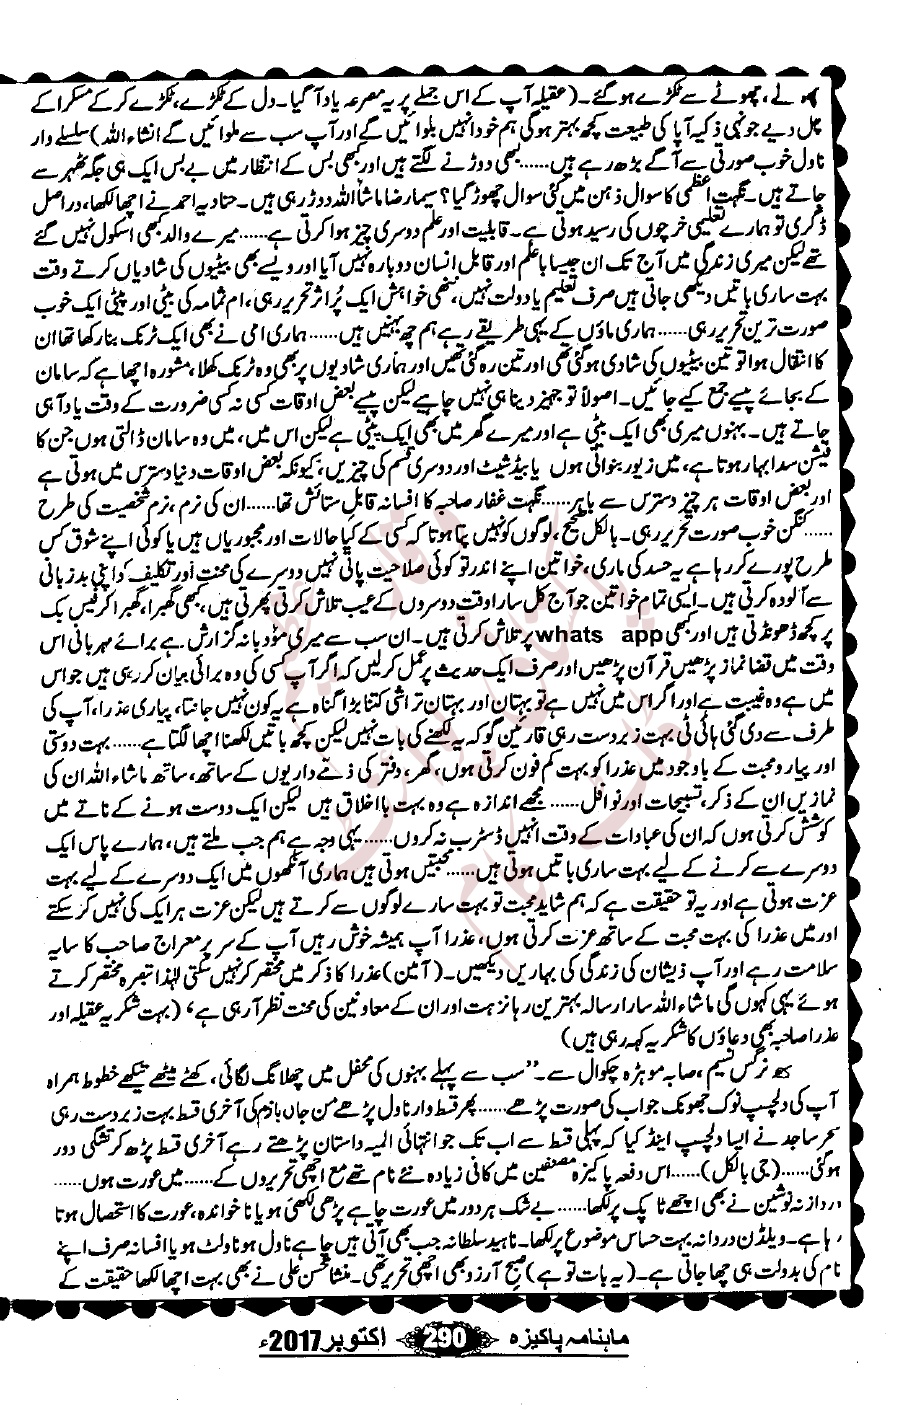 لے، چھوٹے سے ٹکڑے ہو گئے۔ (عقیلہ آپ کے اس جملے پر یہ مصرعہ یاد آ گیا۔ دل کے ٹکڑے، ٹکڑے کر کے مسکرا کے
چل دیے جونہی ذکیہ آپا کی طبیعت کچھ بہتر ہو گی ہم خود انہیں بلوائیں گے اور آپ سب سے ملوائیں گے انشاء اللہ) سلسلے وار
ناول خوب صورتی سے آگے بڑھ رہے ہیں...... کبھی دوڑنے لگتے ہیں اور کبھی بس کے انتظار میں بے بس ایک ہی جگہ ٹھہر سے
جاتے ہیں۔ نگہت اعظمی کا سوال ذہن میں کئی سوال چھوڑ گیا؟ سیما رضا ماشاء اللہ دوڑ رہی ہیں۔ حنا دیہ احمد نے اچھا لکھا، دراصل
ڈگری تو ہمارے تعلیمی خرچوں کی رسید ہوتی ہے۔ قابلیت اور علم دوسری چیز ہوا کرتی ہے...... میرے والد کبھی اسکول نہیں گئے
تھے لیکن میری زندگی میں آج تک ان جیسا باعلم اور قابل انسان دوبارہ نہیں آیا اور ویسے بھی بیٹیوں کی شادیاں کرتے وقت
بہت ساری باتیں دیکھی جاتی ہیں صرف تعلیم یا دولت نہیں، ننھی خواہش ایک پُر اثر تحریر رہی، ام ثمامہ کی بیٹی اور پیٹی ایک خوب
صورت ترین تحریر رہی...... ہماری ماؤں کے یہی طریقے رہے ہم چھ بہنیں ہیں...... ہماری امی نے بھی ایک ٹرنک بنا رکھا تھا ان
کا انتقال ہوا تو تین بیٹیوں کی شادی ہو گئی تھی اور تین رہ گئی تھیں اور ہماری شادیوں پر بھی وہ ٹرنک کھلا، مشورہ اچھا ہے کہ سامان
کے بجائے پیسے جمع کیے جائیں۔ اصولاً تو جہیز دینا ہی نہیں چاہیے لیکن پیسے بعض اوقات کسی نہ کسی ضرورت کے وقت یاد آ ہی
جاتے ہیں۔ بہنوں میری بھی ایک بیٹی ہے اور میرے گھر میں بھی ایک پیٹی ہے لیکن اس میں، میں وہ سامان ڈالتی ہوں جن کا
فیشن سدا بہار ہوتا ہے، میں زیور بنواتی ہوں یا بیڈشیٹ اور دوسری قسم کی چیزیں، کیونکہ بعض اوقات دنیا دسترس میں ہوتی ہے
اور بعض اوقات ہر چیز دسترس سے باہر...... نگہت غفار صاحبہ کا افسانہ قابل ستائش تھا...... ان کی نرم، نرم شخصیت کی طرح
...... کنگن خوب صورت تحریر رہی۔ بالکل صحیح، لوگوں کو نہیں پتا ہوتا کہ کسی کے کیا حالات اور مجبوریاں ہیں یا کوئی اپنے شوق کس
طرح پورے کر رہا ہے یہ حسد کی ماری، خواتین اپنے اندر تو کوئی صلاحیت پاتی نہیں دوسرے کی محنت اور تکلیف کو اپنی بدزبانی
سے آلودہ کرتی ہیں۔ ایسی تمام خواتین جو آج کل سارا وقت دوسروں کے عیب تلاش کرتی پھرتی ہیں، کبھی گھبرا، گھبرا کر فیس بک
پر کچھ ڈھونڈتی ہیں اور کبھی whats app پر تلاش کرتی ہیں۔ ان سب سے میری مؤدبانہ گزارش ہے برائے مہربانی اس
وقت میں قضا نماز پڑھیں قرآن پڑھیں اور صرف ایک حدیث پر عمل کر لیں کہ اگر آپ کسی کی وہ برائی بیان کر رہی ہیں جو اس
میں ہے وہ غیبت ہے اور اگر اس میں نہیں ہے تو بہتان اور بہتان تراشی کتنا بڑا گناہ ہے یہ کون نہیں جانتا، پیاری عذرا، آپ کی
طرف سے دی گئی ہائی ٹی بہت زبردست رہی قارئین گو کہ یہ لکھنے کی بات نہیں لیکن کچھ باتیں لکھنا اچھا لگتا ہے...... بہت دوستی
اور پیار و محبت کے باوجود میں عذرا کو بہت کم فون کرتی ہوں، گھر، دفتر کی ذتے داریوں کے ساتھ، ساتھ ماشاء اللہ ان کی
نمازیں ان کے ذکر، تسبیحات اور نوافل...... مجھے اندازہ ہے وہ بہت با اخلاق ہیں لیکن ایک دوست ہونے کے ناتے میں
کوشش کرتی ہوں کہ ان کی عبادات کے وقت انہیں ڈسٹرب نہ کروں...... یہی وجہ ہے ہم جب ملتے ہیں، ہمارے پاس ایک
دوسرے سے کرنے کے لیے بہت ساری باتیں ہوتی ہیں...... محبتیں ہوتی ہیں ہماری آنکھوں میں ایک دوسرے کے لیے بہت
عزت ہوتی ہے اور یہ تو حقیقت ہے کہ ہم شاید محبت تو بہت سارے لوگوں سے کرتے ہیں لیکن عزت ہر ایک کی نہیں کر سکتے
اور میں عذرا کی بہت محبت کے ساتھ عزت کرتی ہوں، عذرا آپ ہمیشہ خوش رہیں آپ کے سر پر معراج صاحب کا سایہ
سلامت رہے اور آپ ذیشان کی زندگی کی بہاریں دیکھیں۔ (آمین) عذرا کا ذکر میں مختصر کر نہیں سکتی لہٰذا تبصرہ مختصر کرتے
ہوئے یہی کہوں گی ماشاء اللہ سارا رسالہ بہترین رہا نزہت اور ان کے معاونین کی محنت نظر آ رہی ہے‘ (بہت شکریہ عقیلہ اور
عذرا صاحبہ بھی دعاؤں کا شکریہ کہہ رہی ہیں)
نرگس نسیم، صابہ موہڑہ چکوال سے۔ ”سب سے پہلے بہنوں کی محفل میں چھلانگ لگائی، کھٹے میٹھے تیکھے خطوط ہمراہ
آپ کی دلچسپ نوک جھونک جواب کی صورت پڑھے...... پھر قسط وار ناول پڑھے من جاں بازم کی آخری قسط بہت زبردست رہی
سحر ساجد نے ایسا دلچسپ اینڈ کیا کہ پہلی قسط سے اب تک جو انتہائی المیہ داستان پڑھتے رہے آخری قسط پڑھ کر تشنگی دور
ہو گئی...... (جی بالکل)...... اس دفعہ پاکیزہ مصنفین میں کافی زیادہ نئے نام تھے مع اچھی تحریروں کے...... میں عورت ہوں......
دردانہ نوشین نے بھی اچھے ٹاپک پر لکھا...... بے شک ہر دور میں عورت چاہے پڑھی لکھی ہو یا ناخواندہ، عورت کا استحصال ہوتا
رہا ہے۔ ویلڈن دردانہ بہت حساس موضوع پر لکھا۔ ناہید سلطانہ جب بھی آتی ہیں چاہے ناول ہو ناولٹ ہو یا افسانہ صرف اپنے
نام کی بدولت ہی چھا جاتی ہے۔ (یہ بات تو ہے) صبح آرزو بھی اچھی تحریر تھی۔ منشا محسن علی نے بھی بہت اچھا لکھا حقیقت کے
ماہنامہ پاکیزہ 290 اکتوبر 2017ء